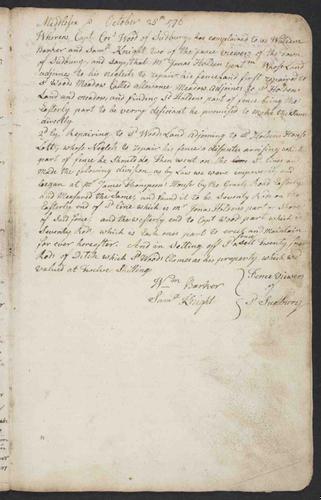 Middlesex ss October 28th 1776
Whereas Capt Cor: Wood of Sudbury has complained to us William
Barker and Saml Knight two of the fence viewers of the town
of Sudbury and says that Mr Jonas Holden Whose Land
adjoines to his neglects to repair his fence Land first repaired to
sd Woods Meadow Called allowance Meadow Adjoines to sd Holdens
Land and meadow, and finding sd Holdens part of fence being the
Easterly part to be verry deficient he promised to make the same
directly
2dly Repairing to sd Woods Land adjoining to sd Holdens House
Lott, whose Neglects to repair his fence a dispute arrising which
part of fence he Should do. Then went on the sd lines and
made the following division, as by Law we were impowered and
began at Mr James Thompsons House by the County Road Easterly
and Measured the Same, and found it to be Seventy Rod on
Easterly end of sd Line which is Mr Jonas Holdens part
of Said fence and the westerly end to Capt Wood part which is
Seventy Rod. which is Each ones part to erect and maintain
for ever hereafter. And in Setting off sd a Twenty four
Rods of Ditch which sd Wood Claimes as his property which we
valued at twelve Shillings
Wm Barker
Saml Knight
Fence Viewers
of
sd Sudbury